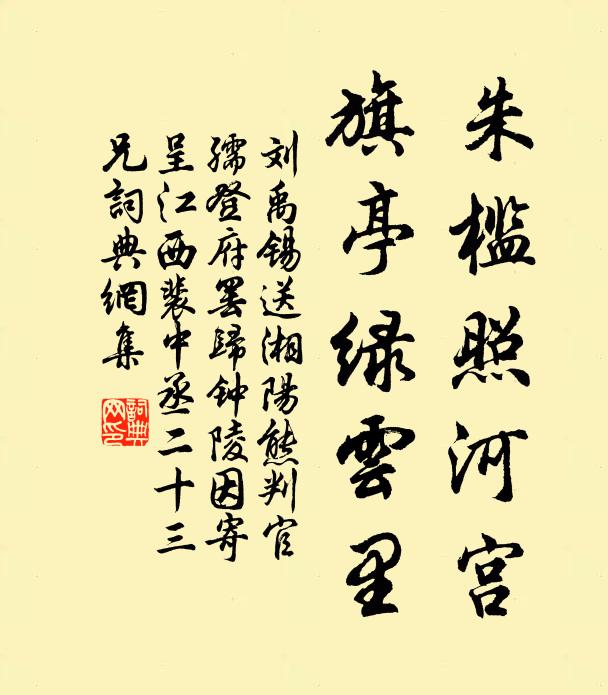 朱槛照河宫
旗亭绿雲里
刘禹锡送湘陽熊判官
孺登府罢歸钟陵因寄
呈江西裴中丞二十三
兄詞典網集
詞典
网印